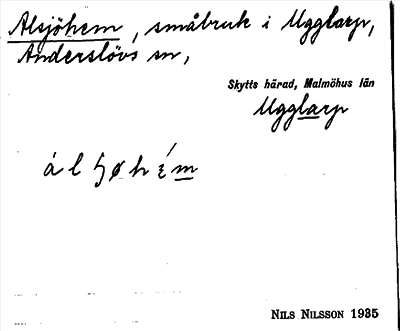 Alsjöhem, småbruk i Ugglarp,
Anderslövs sn,
Skytts härad, Malmöhus län
Ugglarp
NILS NILSSON 1935